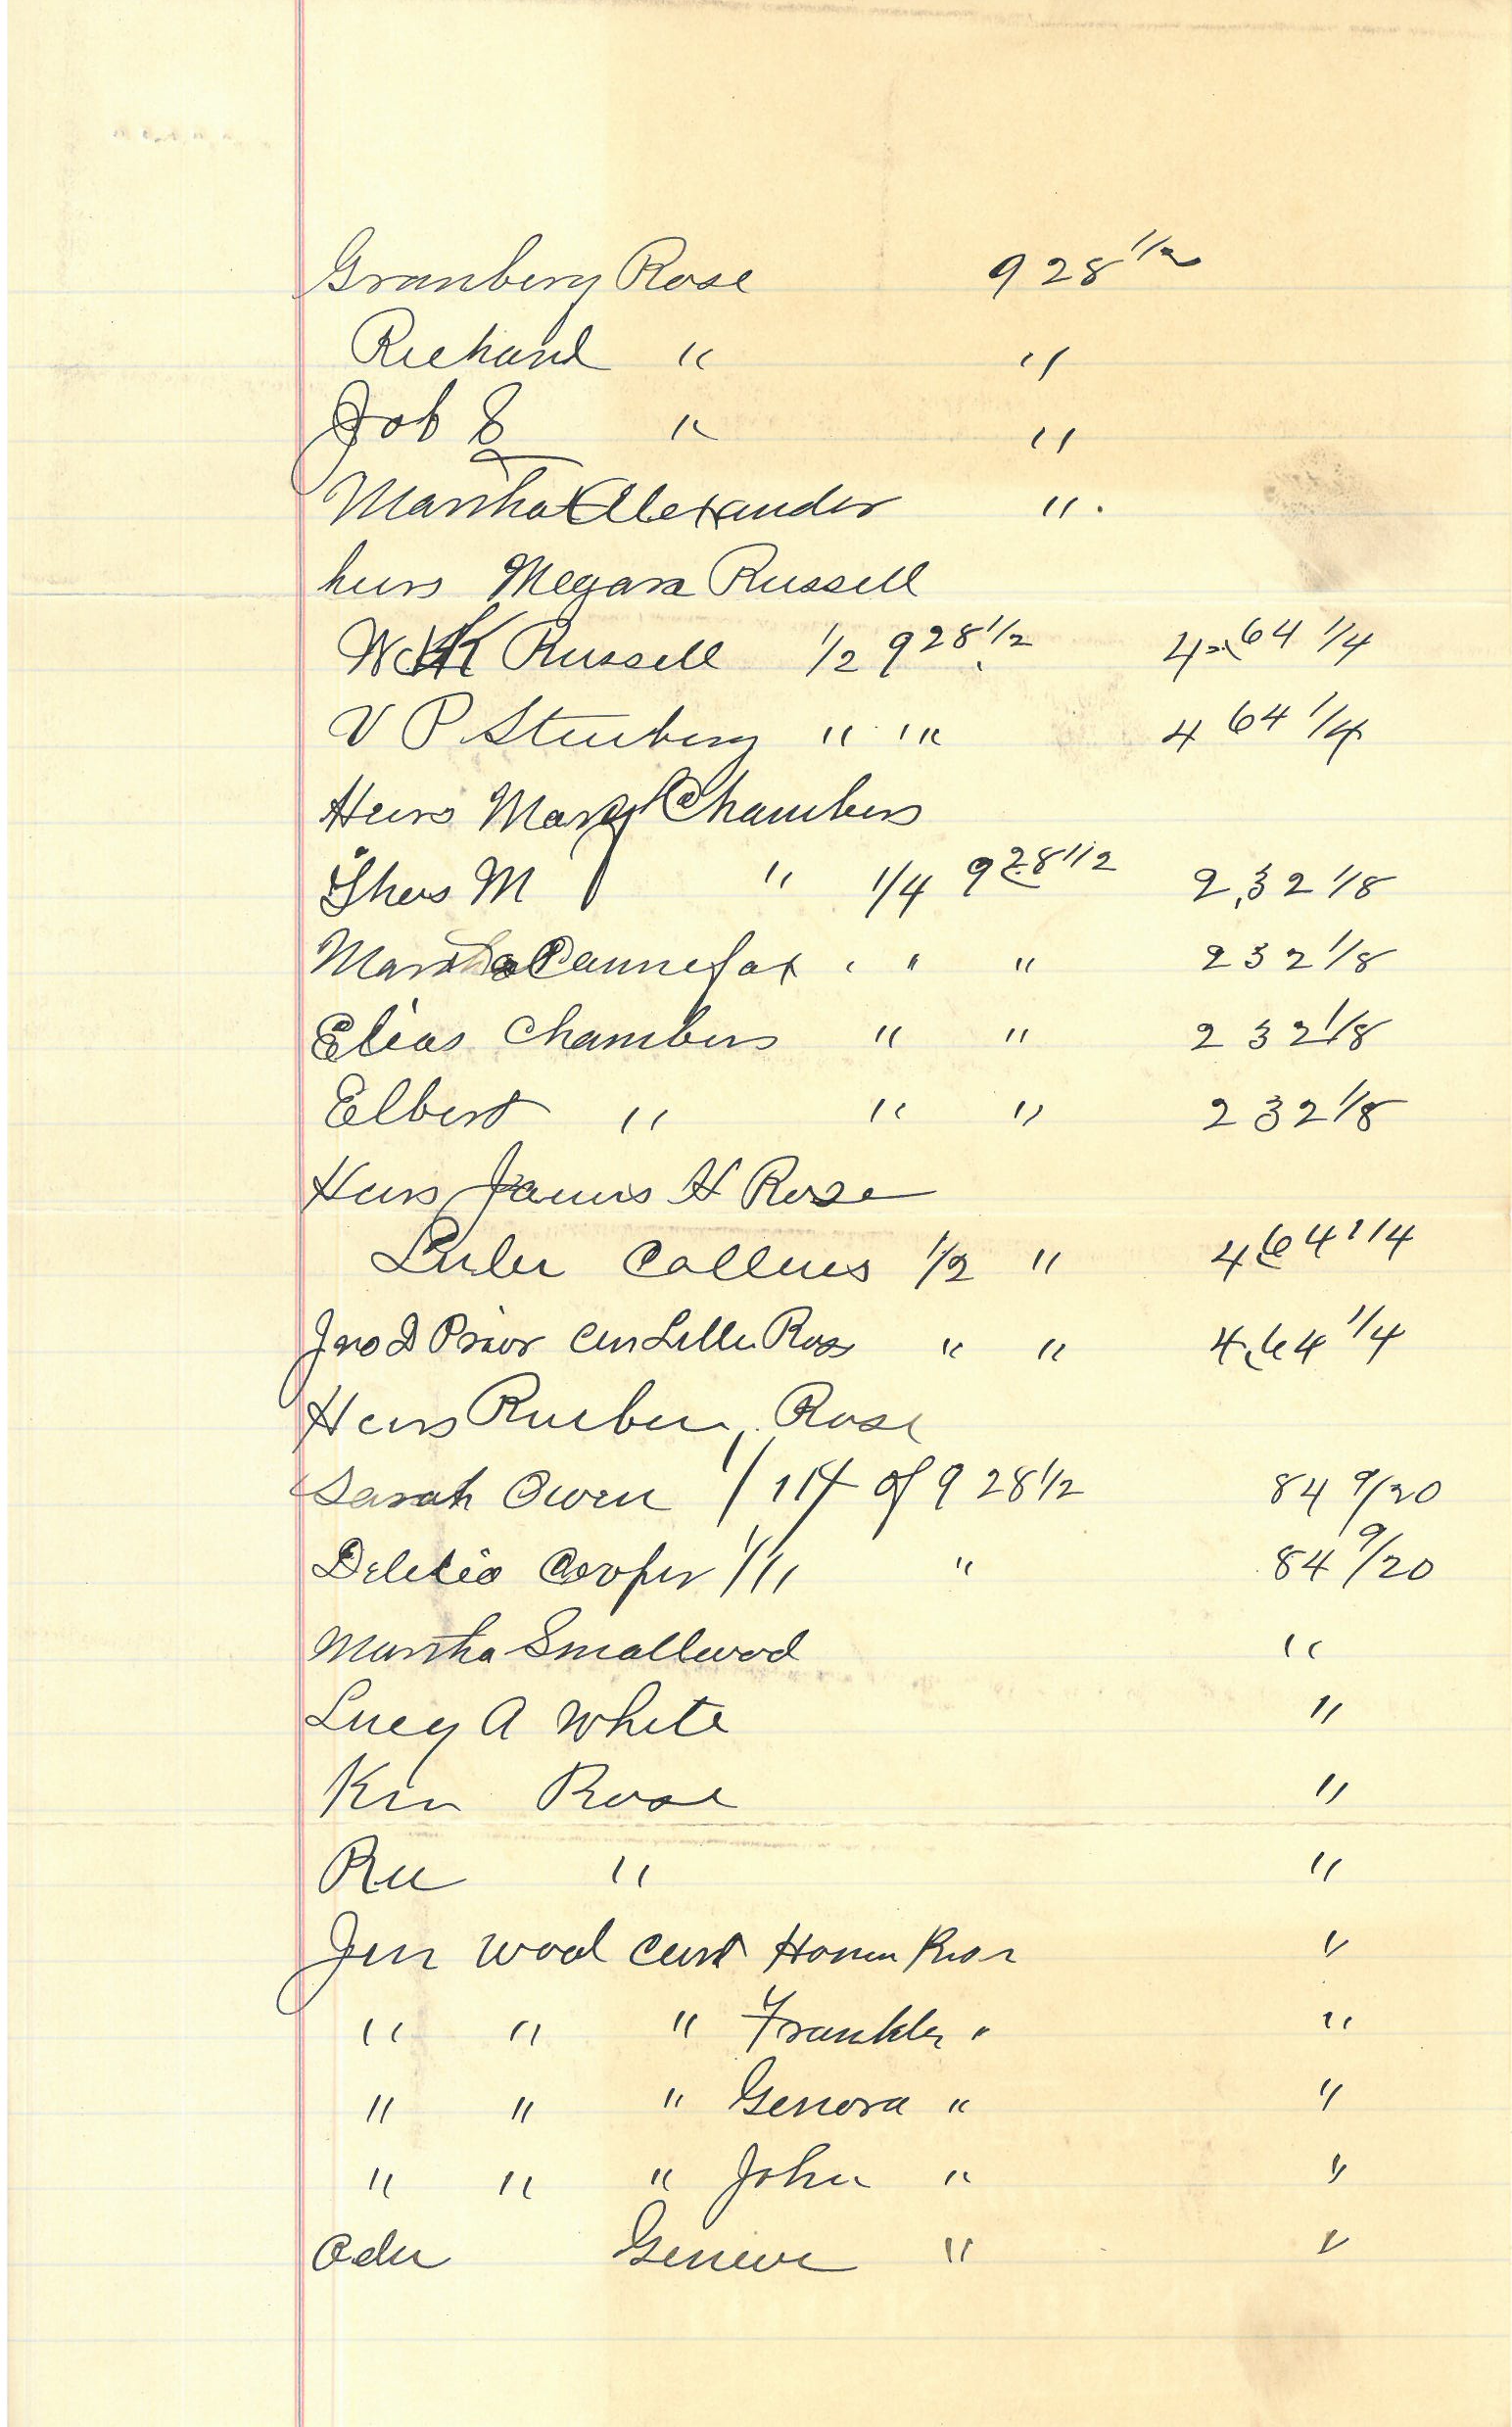 Granbery Rose 928 1/2
Richard " "
Job S " "
Martha Alexander " .
heirs Megara Russell
W K Russell 1/2 928 1/2 4 64 1/4
V P Steinberg " " 4 64 1/4
Heirs Mary Chambers
Thos M " 1/4 9 28 1/2 2,32 1/8
Martha Cannefax " " 232 1/8
Elias Chambers " " 232 1/8
Elbert " " " 232 1/8
Heirs James H Rose
Collins 1/2 " 4 64 1/4
Jno D Prior Rose " " 4,64 1/4
Heirs Rueben Rose
Sarah Owen 1/11 of 9 28 1/2 84 9/20
Cooper 1/11 " 84 9/20
Martha Smallwood "
Lucy A White "
Kin Rose "
Ree " "
Jim Wood "
" " " Franklin " "
" " " Genora " "
" " " John " "
Geneve " "